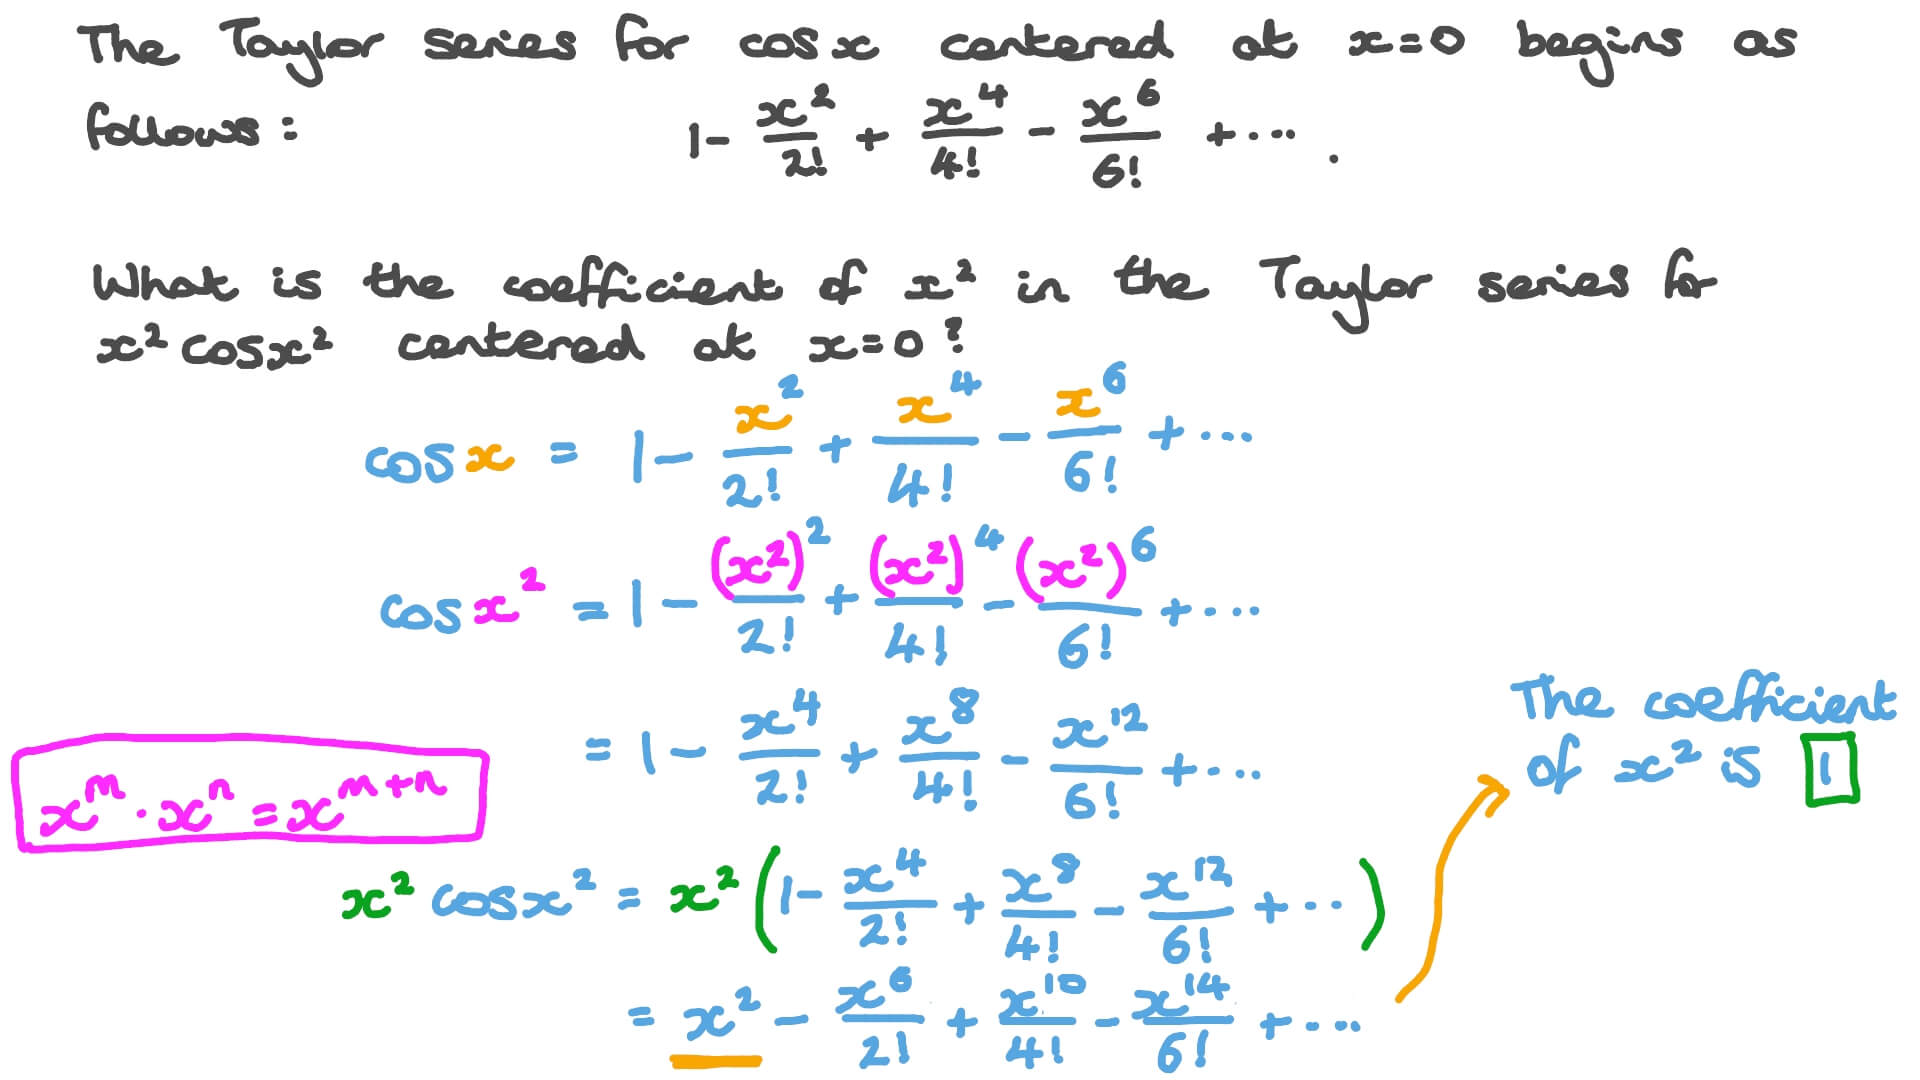 The Taylor series for cos x centered at x=0 begins as
follows: 1 - x²/2! + x⁴/4! - x⁶/6! + ... .
What is the coefficient of x² in the Taylor series for
x² cosx² centered at x=0?
cos x = 1 - x²/2! + x⁴/4! - x⁶/6! + ...
cos x² = 1 - (x²)²/2! + (x²)⁴/4! - (x²)⁶/6! + ...
= 1 - x⁴/2! + x⁸/4! - x¹²/6! + ...
The coefficient
of x² is 1
xᵐ · xⁿ = xᵐ⁺ⁿ
x² cosx² = x² (1 - x⁴/2! + x⁸/4! - x¹²/6! + ...)
= x² - x⁶/2! + x¹⁰/4! - x¹⁴/6! + ...